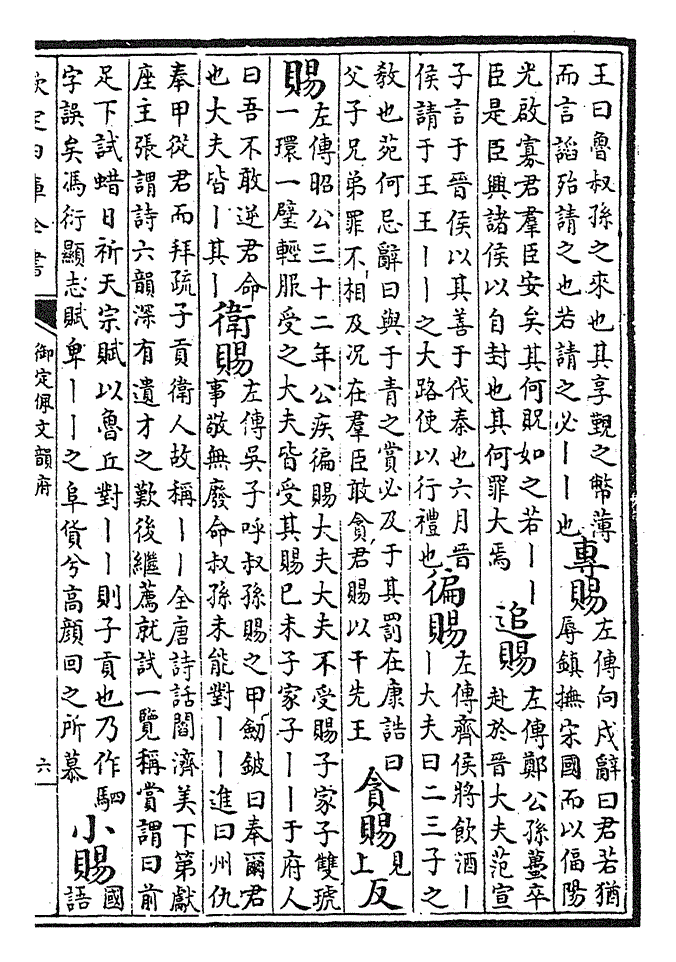 王曰魯叔孫之來也其享覲之幣薄
而言諂殆請之也若請之必丨丨也
專賜
左傳向戌辭曰君若猶
辱鎮撫宋國而以偪陽
光啟寡君羣臣安矣其何貺如之若丨丨
臣是臣興諸侯以自封也其何罪大焉
追賜
左傳鄭公孫蠆卒
赴於晉大夫范宣
子言于晉侯以其善于伐秦也六月晉
侯請于王王丨丨之大路使以行禮也
徧賜
左傳齊侯將飲酒丨
丨大夫曰二三子之
教也苑何忌辭曰與于青之賞必及于其罰在康誥曰
父子兄弟罪不相及況在羣臣敢貪君賜以干先王
貪賜
見
上
反
賜
左傳昭公三十二年公疾徧賜大夫大夫不受賜子家子雙琥
一環一璧輕服受之大夫皆受其賜已未子家子丨丨于府人
曰吾不敢逆君命
也大夫皆丨其丨
衛賜
左傳吳子呼叔孫賜之甲劒鈹曰奉爾君
事敬無廢命叔孫未能對丨丨進曰州仇
奉甲從君而拜疏子貢衛人故稱丨丨全唐詩話閻濟美下第獻
座主張謂詩六韻深有遺才之歎後繼薦就試一覽稱賞謂曰前
足下試蜡日祈天宗賦以魯丘對丨丨則子貢也乃作駟
字誤矣馮衍顯志賦卑丨丨之阜貨兮高顏回之所慕
小賜
國
語
欽定四庫全書
御定佩文韻府
六